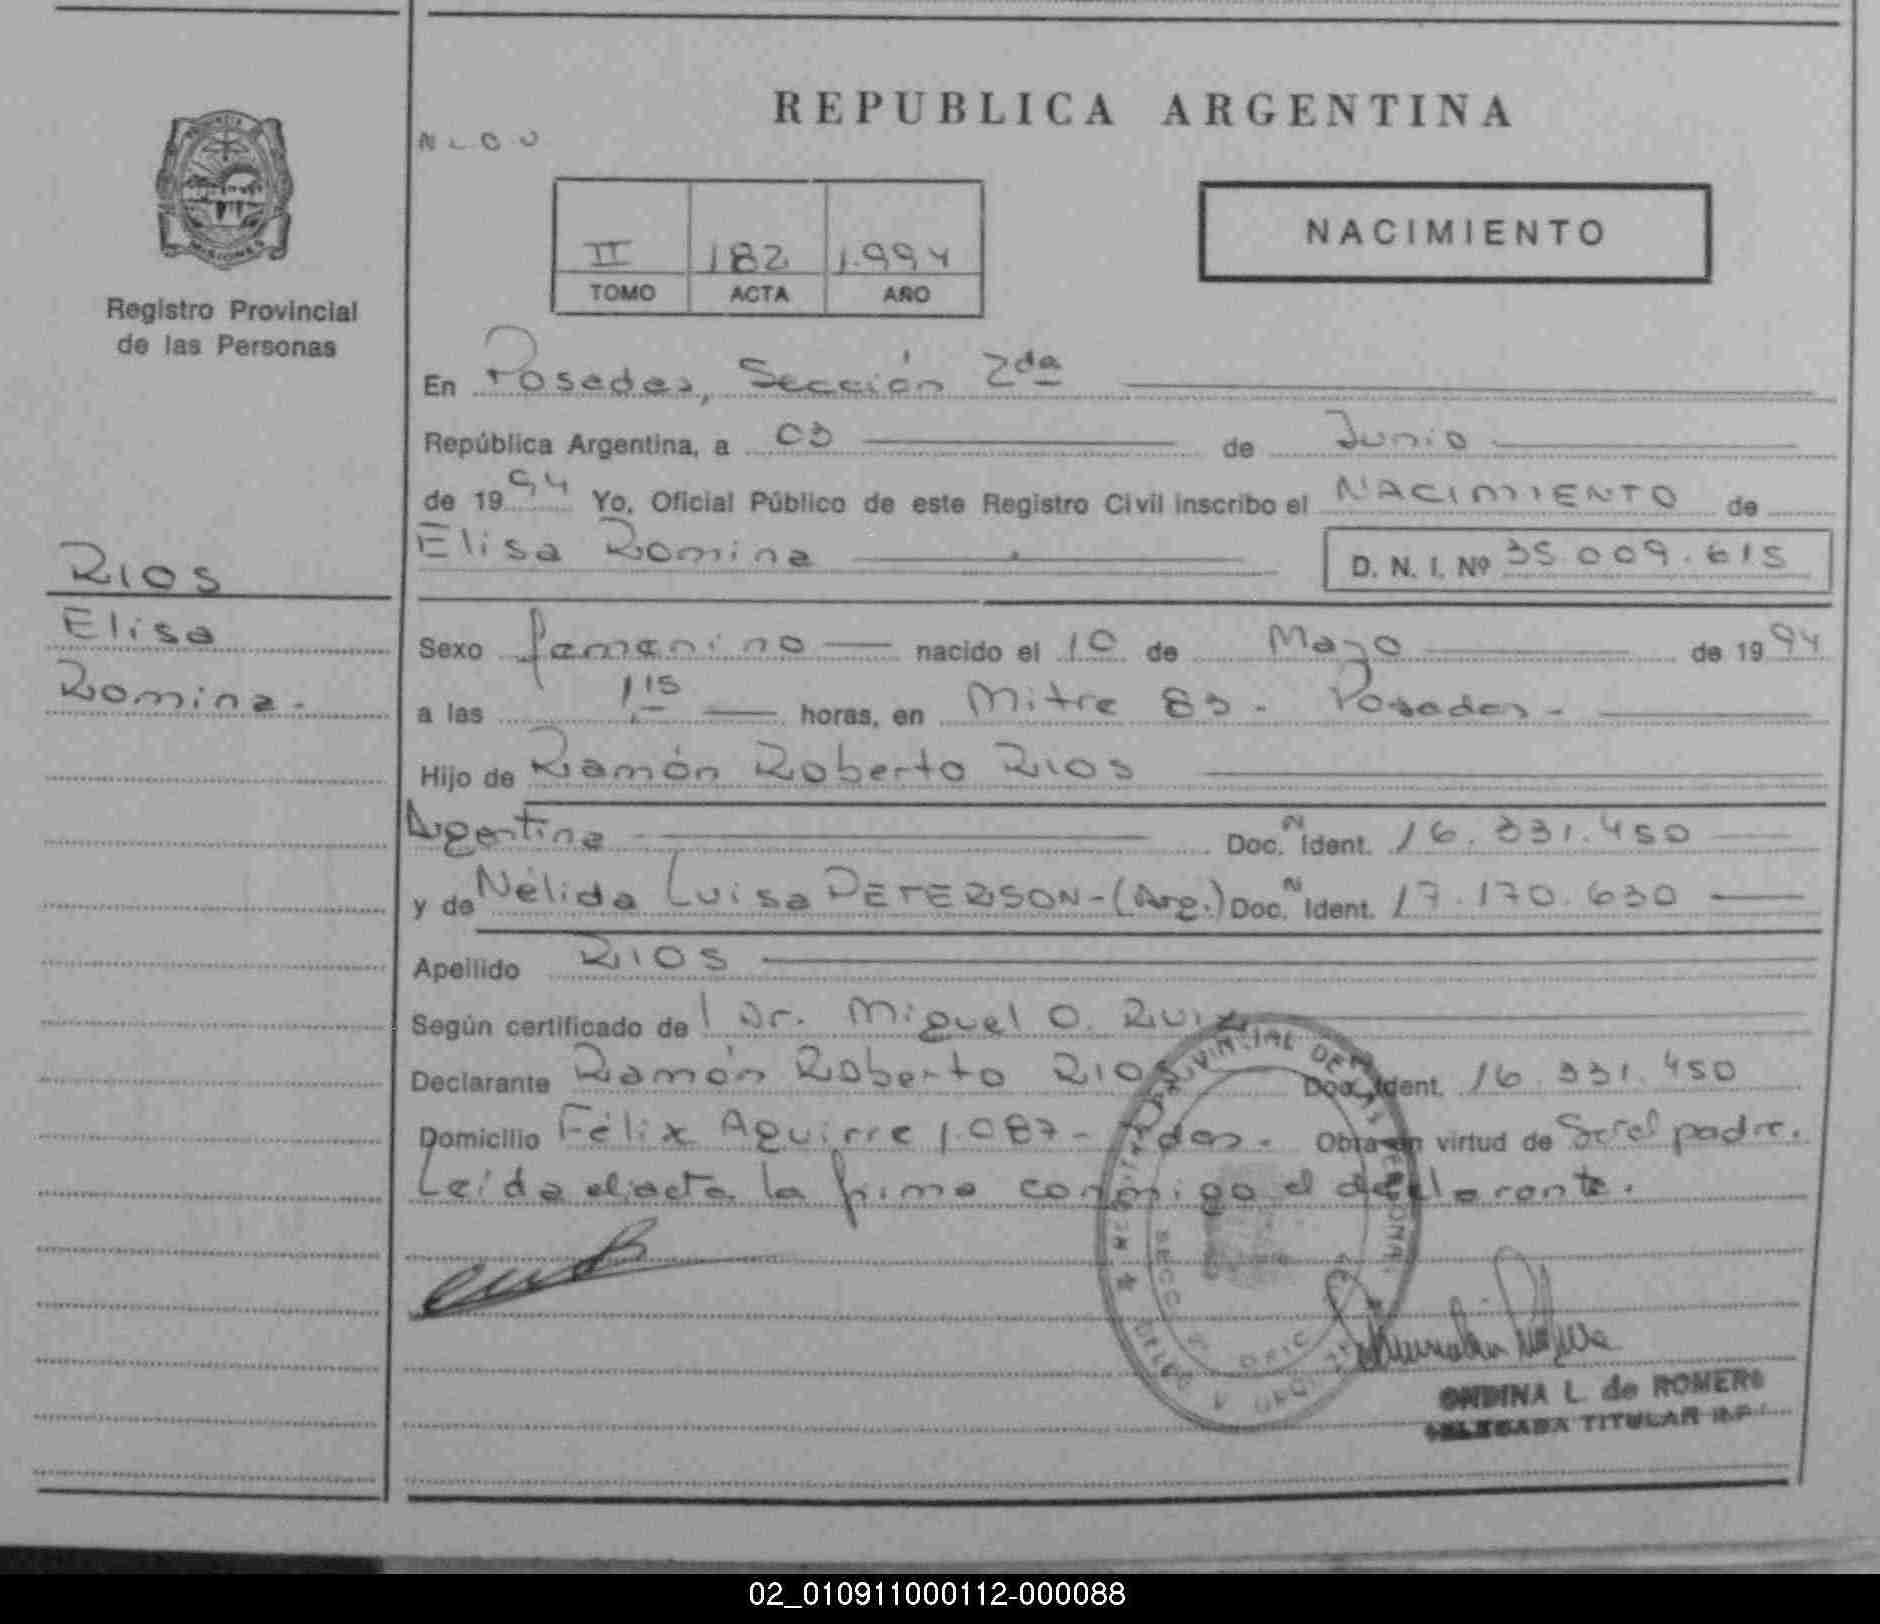 REPUBLICA ARGENTINA
PROVINCIA
MISIONES
Registro Provincial
de las Personas
NACIMIENTO
II 182 1.994
TOMO ACTA AÑO
En Posadas, Sección 2da
República Argentina, a 03 de Junio
de 1994 Yo, Oficial Público de este Registro Civil inscribo el NACIMIENTO de
Elisa Romina D. N. I. Nº 35.009.615
RIOS
Elisa
Romina.-
Sexo femenino nacido el 10 de Mayo de 1994
a las 1,15 horas, en Mitre 83 - Posadas -
Hijo de Ramón Roberto RIOS
Argentina Doc. N Ident. 16.331.450
y de Nélida Luisa PETERSON-(Arg.) Doc. N Ident. 17.170.630
Apellido RIOS
Según certificado de Dr. Miguel O. Ruiz
Declarante Ramón Roberto RIOS Doc. Ident. 16.331.450
Domicilio Félix Aguirre 1.087- Pdas. Obra en virtud de Ser el padre.
Leída el acta la firma conmigo el declarante.
ONDINA L. de ROMERO
DELEGADA TITULAR R.P.
02_010911000112-000088